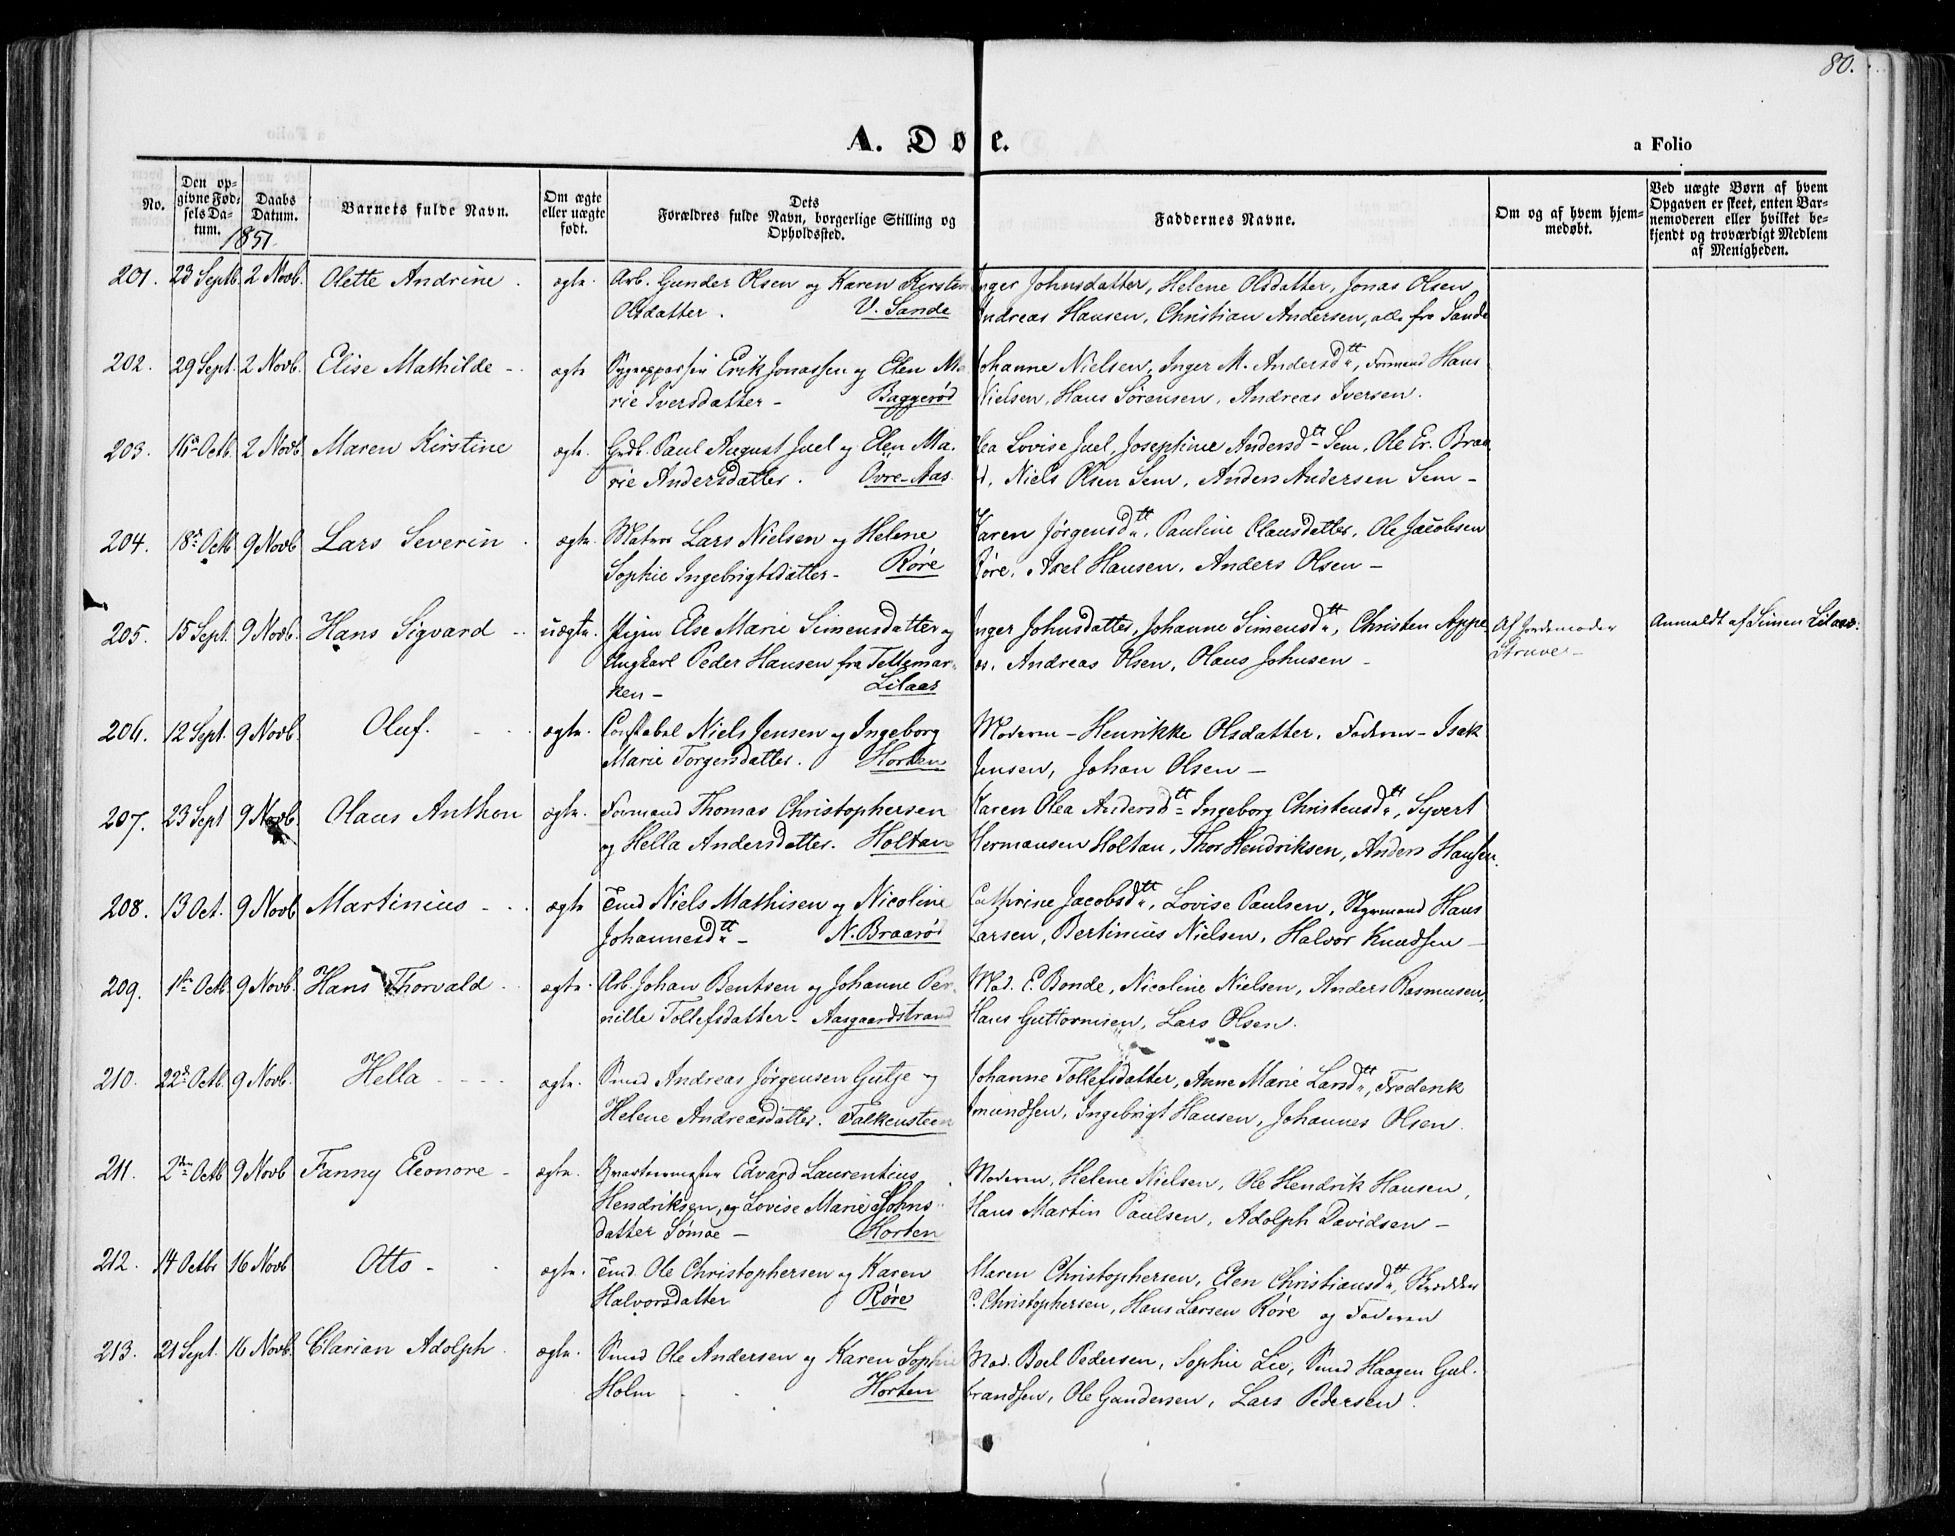 80.
A. Døe.
a Folio
No.
Den op-
givne Fød-
sels Da-
tum.
Daabs
Datum.
Barnets fulde Navn.
Om ægte
eller uægte
født.
Dets
Forældres fulde Navn, borgerlige Stilling og
Opholdssted.
Faddernes Navne.
Om og af hvem hjem-
medøbt.
Ved uægte Børn af hvem
Opgaven er skeet, enten Bar-
nemoderen eller hvilket be-
kjendt og troværdigt Medlem
af Menigheden.
1851
201. 23 Septb. 2 Novb. Olette Andrine ægte. Arb. Gunder Olsen og Karen Kirstine Inger Johnsdatter, Helene Olsdatter, Jonas Olsen
Olsdatter. V. Sande Andreas Hansen, Christian Andersen, alle fra Sande
202. 29 Sept. 2 Novb. Elise Mathilde - ægte Erik Jonassen og Elen Ma- Johanne Nielsen, Inger M. Andersdtt, Formand Hans
rie Iversdatter - Baggerød Nielsen, Hans Sørensen, Andreas Iversen.
203. 16a Octb. 2 Novb. Maren Kirstine ægte. Grdb. Paul August Juel og Elen Ma- Lovise Juel, Josephine Andersdtt Sem, Ole Er. Braa
rie Andersdatter. Ovre-Aas. Niels Olsen Sem, Anders Andersen Sem -
204. 18de Octb. 9 Novb Lars Severin. ægte. Matros Lars Nielsen og Helene Karen Jørgensdtt, Pauline Clausdatter, Ole Jacobsen
Sophie Ingebrigtsdatter - Røre Røre, Axel Hansen, Anders Olsen -
205. 15 Sept. 9 Novb. Hans Sigvard - uægte. Pigen Else Marie Simensdatter og Inger Johnsdatter, Johanne Simensdtt, Christen Appe Af Jordemoder Anmeldt af Simen Lilaas.
Ungkarl Peder Hansen fra Tellemar- Andreas Olsen, Olaus Johnsen - Struve -
ken - Lilaas
206. 12 Sept. 9 Novb. Oluf. ægte. Constabel Niels Jensen og Ingeborg Moderen - Henrikke Olsdatter, Faderen - Isak
Marie Torgersdatter. Horten Jensen, Johan Olsen -
207. 23 Sept 9 Novb. Olaus Anthon ægte. Formand Thomas Christophersen Karen Olea Andersdtt Ingeborg Christensdtt, Syvert
og Hella Andersdatter. Holtan Hermansen Holtan, Thor Hendriksen, Anders Hansen.
208. 13 Oct. 9 Novb Martinius - ægte Tmd Niels Mathisen og Nicoline Cathrine Jacobsdtt, Lovise Paulsen, Styrmand Hans
Johannesdtt - N. Braarød Larsen, Bertinius Nielsen, Halvor Knudsen -
209. 1ste Octb. 9 Novb. Hans Thorvald ægte. Arb. Johan Bentsen og Johanne Per- Mad. E. Bonde, Nicoline Nielsen, Anders Rasmusen,
nille Tollefsdatter - Aasgaardstrand Hans Guttormsen, Lars Olsen.
210. 22de Octb. 9 Novb. Hella - - - ægte. Smed Andreas Jørgensen Gutje og Johanne Tollefsdatter, Anne Marie Larsdtt, Frederik
Helene Andreasdatter. Falkensteen Amundsen, Ingebrigt Hansen, Johannes Olsen.
211. 2den Octb 9 Novb Fanny Eleonore - ægte. Qvarteermester Edvard Laurentius Moderen, Helene Nielsen, Ole Hendrik Hansen,
Hendriksen, og Lovise Marie Johns- Hans Martin Paulsen, Adolph Davidsen -
datter Sømoe - Horten
212. 14 Octbr 16 Novb Otto - ægte. Tmd. Ole Christophersen og Karen Maren Christophersen, Elen Christiansdtt, Skrædder
Halvorsdatter Røre C. Christophersen, Hans Larsen Røre og Faderen
213. 21 Sept. 16 Novb. Clarian Adolph. ægte. Smed Ole Andersen og Karen Sophie Mad. Boel Pedersen, Sophie Lie, Smed Haagen Gul-
Holm Horten brandsen, Ole Gundersen, Lars Pedersen.